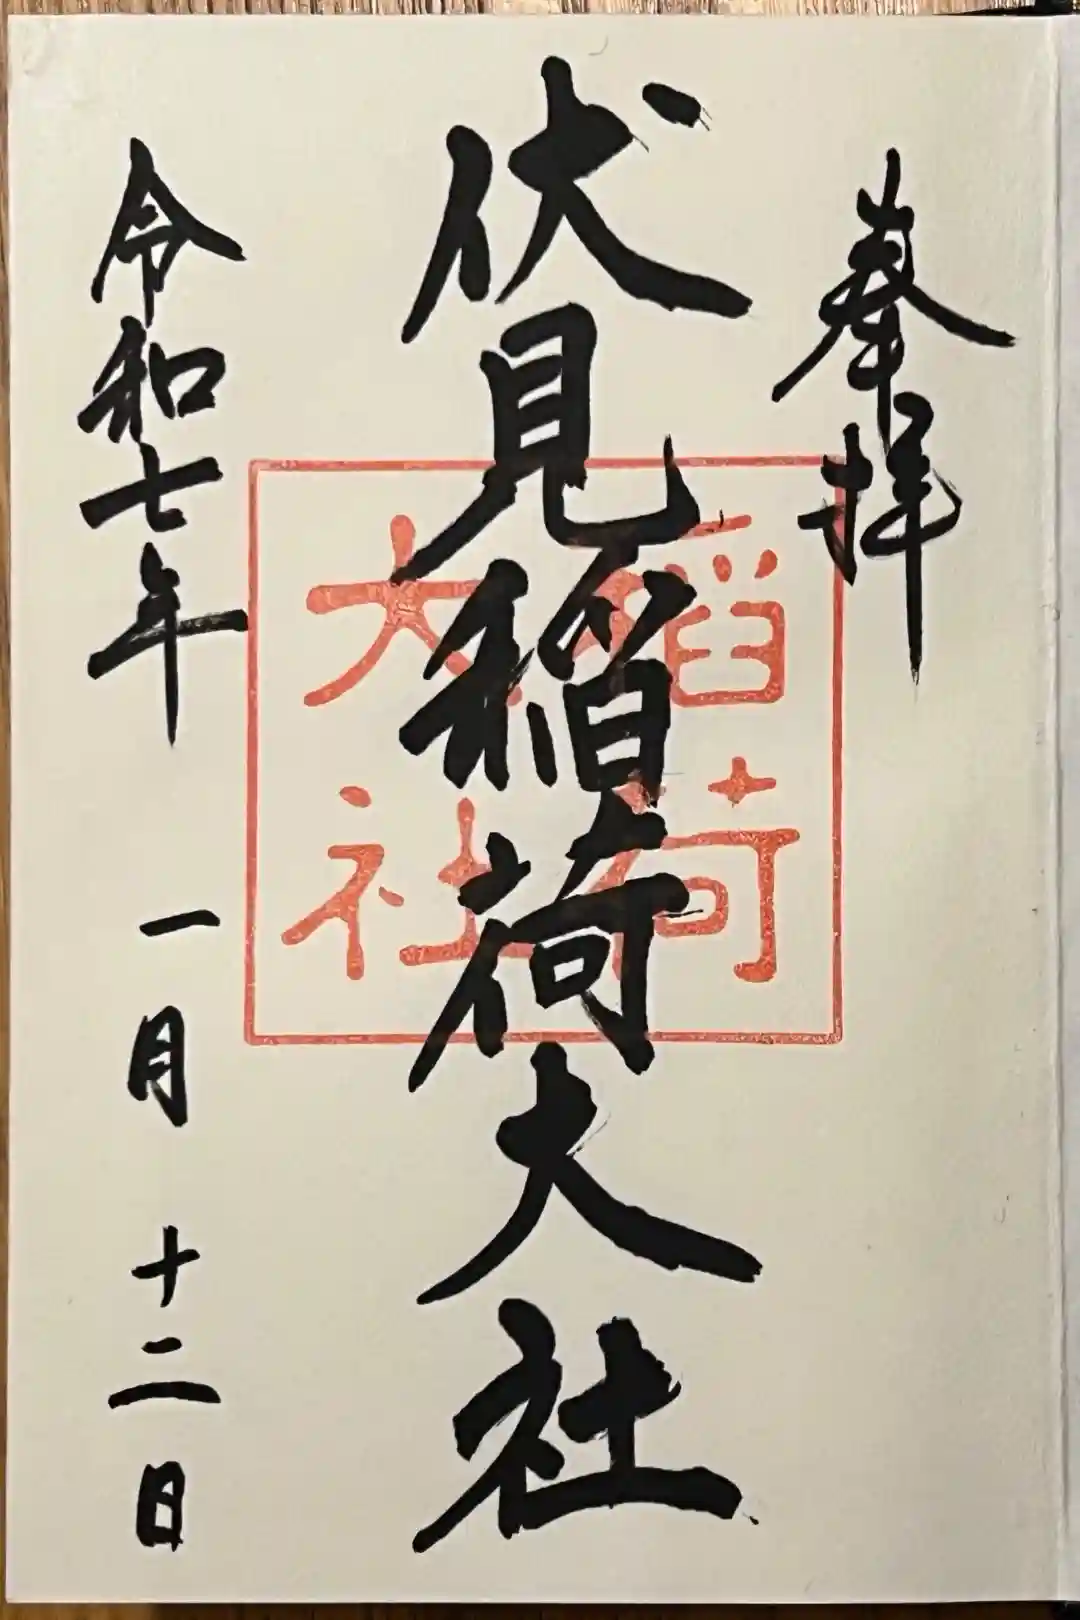 奉拝
伏見稲荷大社
稲荷
大社
令和七年 一月 十二日